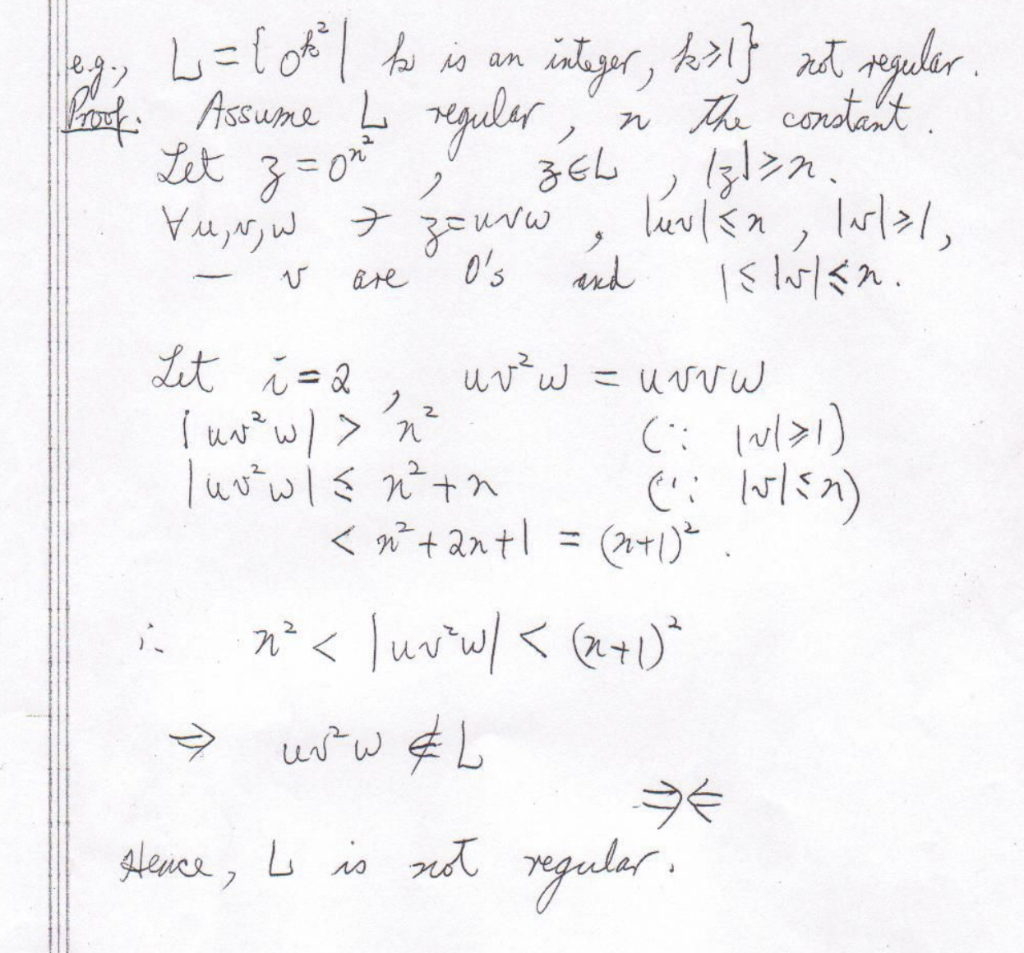 e.g., L = { 0^{k^2} | k is an integer, k ≥ 1 } not regular.
Proof. Assume L regular, n the constant.
Let z = 0^{n^2}, z ∈ L, |z| ≥ n.
∀ u, v, w ∋ z = uvw, |uv| ≤ n, |v| ≥ 1,
— v are 0's and 1 ≤ |v| ≤ n.
Let i = 2, uv²w = uvvw
|uv²w| > n² (∵ |v| ≥ 1)
|uv²w| ≤ n² + n (∵ |v| ≤ n)
< n² + 2n + 1 = (n+1)².
∴ n² < |uv²w| < (n+1)²
⇒ uv²w ∉ L
⇒⇐
Hence, L is not regular.